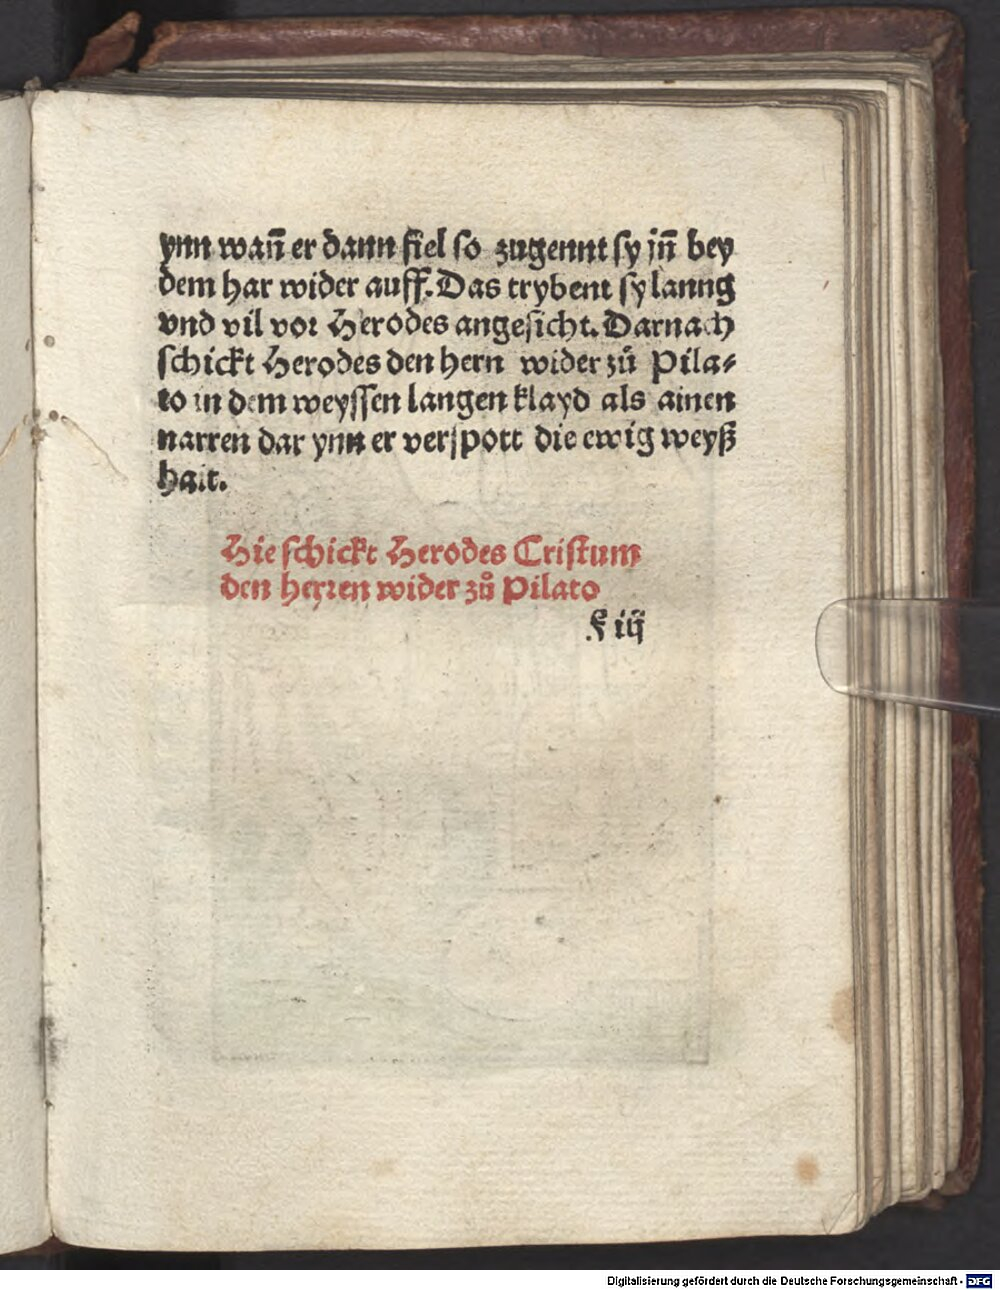 ynn wañ er dann fiel so zugennt sy jñ bey
dem har wider auff. Das trybent sy lanng
vnd vil vor Herodes angesicht. Darnach
schickt Herodes den hern wider zů Pila⸗
to in dem weyssen langen klayd als ainen
narren dar ynn er verspott die ewig weyß
hait.
Hie schickt Herodes Cristum
den herren wider zů Pilato
iij
Digitalisierung gefördert durch die Deutsche Forschungsgemeinschaft - DFG